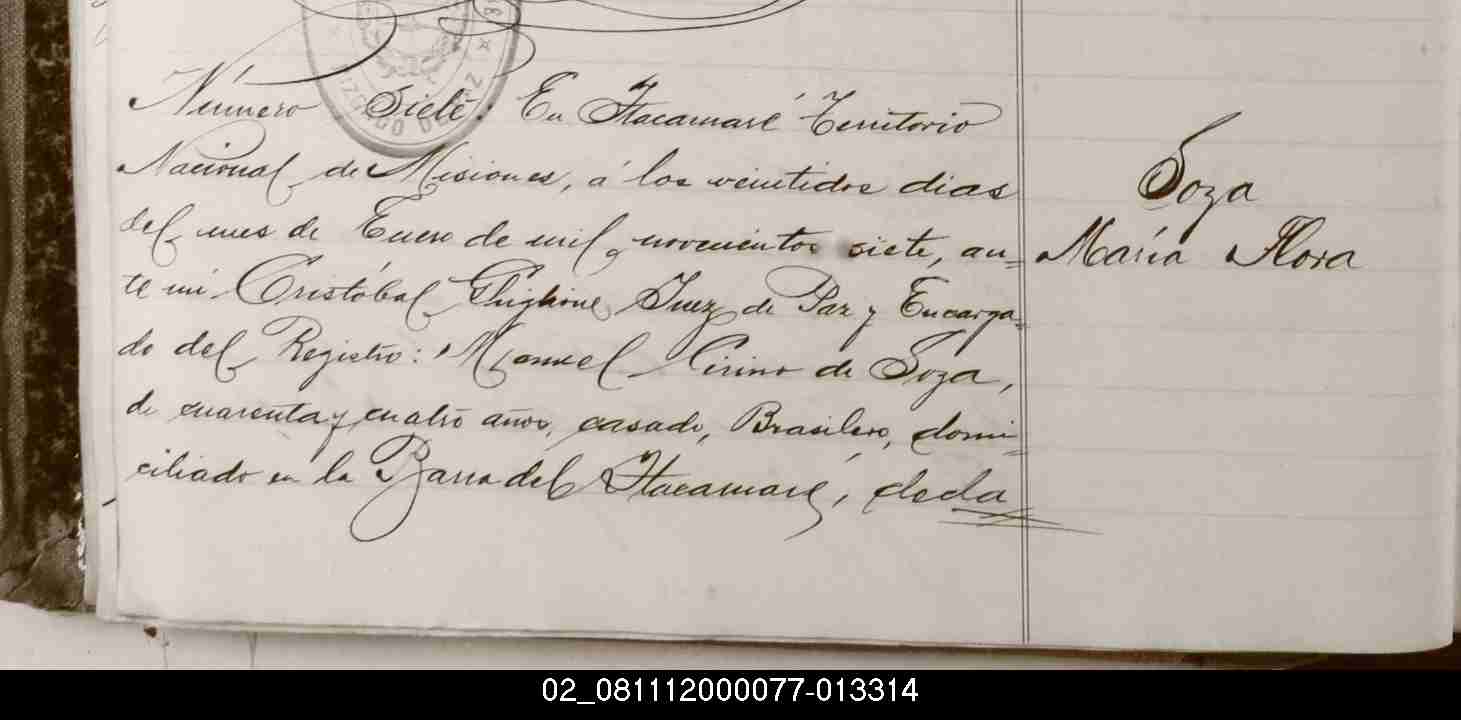 JUZGADO DE PAZ
Número Siete: En Itacamaré Territorio
Nacional de Misiones, á los veintidos dias
del mes de Enero de mil novecientos siete, an=
te mi Cristóbal Ghiglione Juez de Paz y Encarga=
do del Registro: Manuel Cirino de Soza,
de cuarenta y cuatro años, casado, Brasilero, domi=
ciliado en la Barra del Itacamaré, decla
Soza
María Flora
02_081112000077-013314